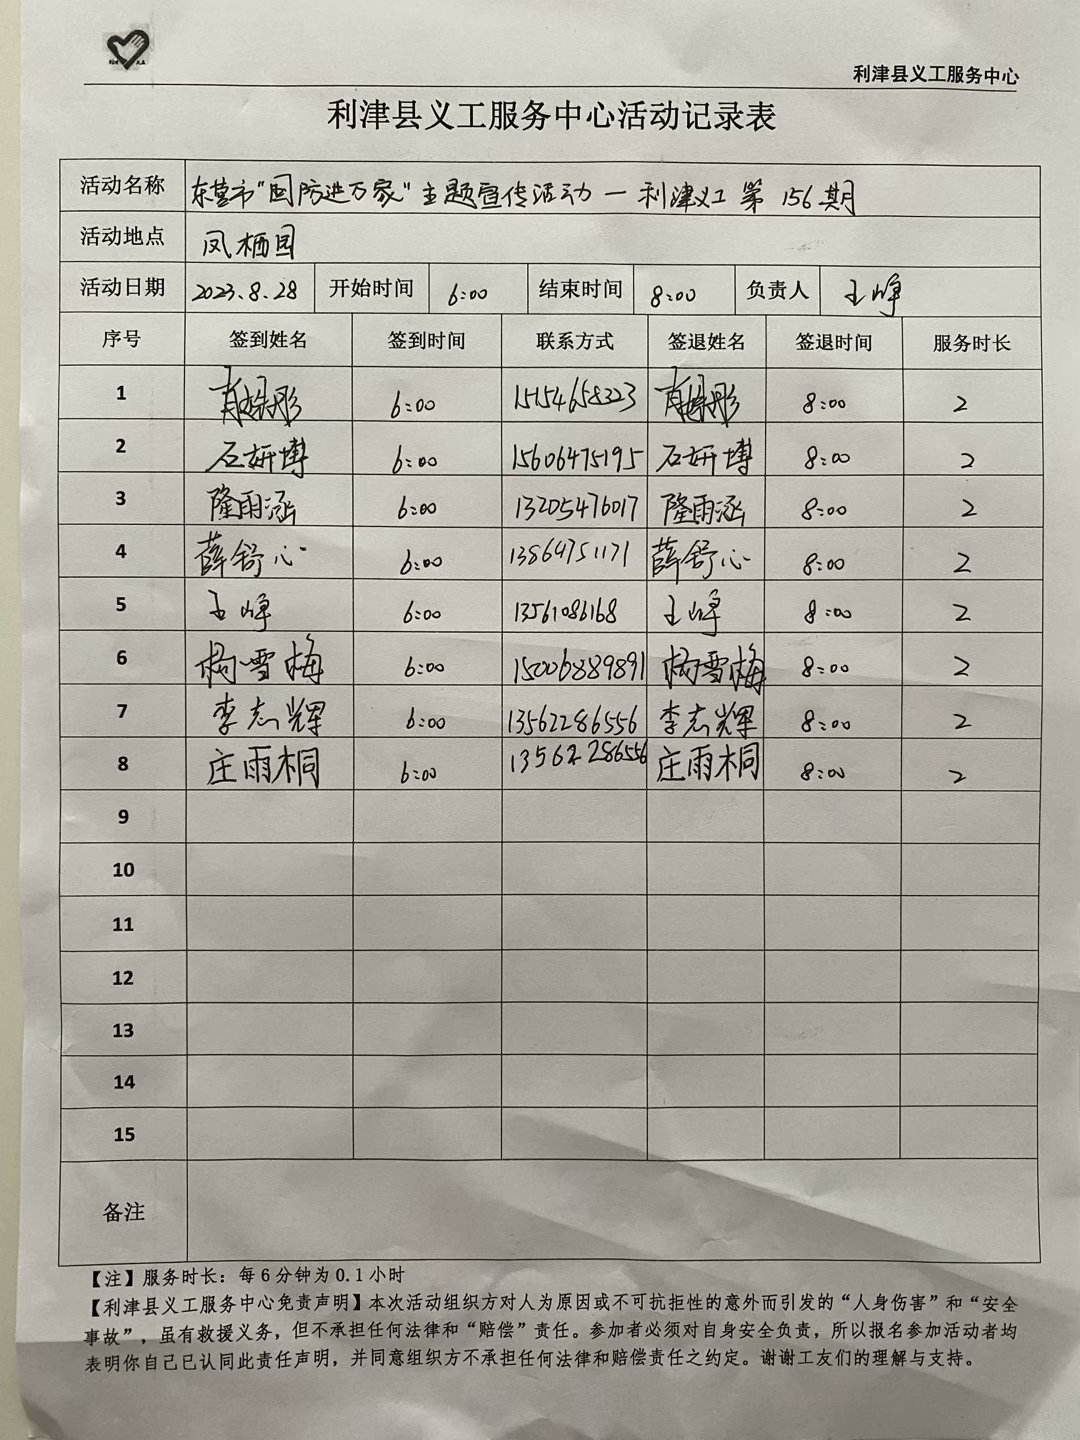 利津县义工服务中心
利津县义工服务中心活动记录表
活动名称 东营市“国防进万家”主题宣传活动一利津义工第156期
活动地点 凤栖园
活动日期 2023.8.28 开始时间 6:00 结束时间 8:00 负责人 王峰
序号 签到姓名 签到时间 联系方式 签退姓名 签退时间 服务时长
1 6:00 15154658323 8:00 2
2 石妍博 6:00 15606475195 石妍博 8:00 2
3 隆雨涵 6:00 13205476017 隆雨涵 8:00 2
4 薛舒心 6:00 13864751171 薛舒心 8:00 2
5 王峰 6:00 13561086168 王峰 8:00 2
6 杨雪梅 6:00 15006889891 杨雪梅 8:00 2
7 李志辉 6:00 13562286556 李志辉 8:00 2
8 庄雨桐 6:00 13562286556 庄雨桐 8:00 2
9
10
11
12
13
14
15
备注
【注】服务时长：每6分钟为0.1小时
【利津县义工服务中心免责声明】本次活动组织方对人为原因或不可抗拒性的意外而引发的“人身伤害”和“安全
事故”，虽有救援义务，但不承担任何法律和“赔偿”责任。参加者必须对自身安全负责，所以报名参加活动者均
表明你自己已认同此责任声明，并同意组织方不承担任何法律和赔偿责任之约定。谢谢工友们的理解与支持。